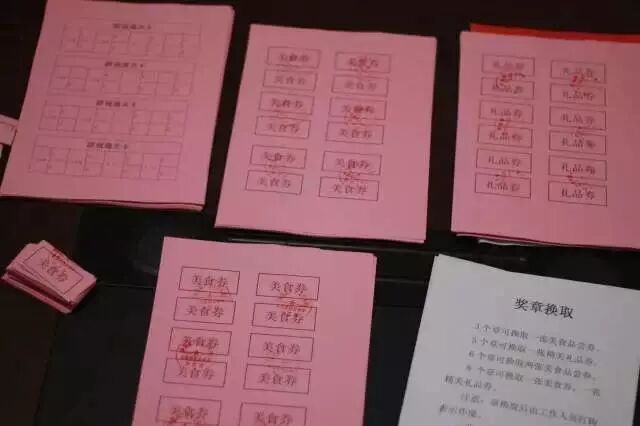 游戏通关卡
游戏通关卡
游戏通关卡
游戏通关卡
美食券 美食券
美食券 美食券
美食券 美食券
美食券 美食券
美食券 美食券
美食券 美食券
礼品券 礼品券
礼品券 礼品券
礼品券 礼品券
礼品券 礼品券
礼品券 礼品券
礼品券 礼品券
美食券
美食券 美食券
美食券 美食券
美食券 美食券
美食券 美食券
美食券 美食券
奖章换取
3 个章可换取一张美食品尝券，
5 个章可换取一张精美礼品券，
6 个章可换取两张美食品尝券，
8 个章可换取一张美食券，一张
精美礼品券。
注意：章换取后由工作人员打钩
表示作废。